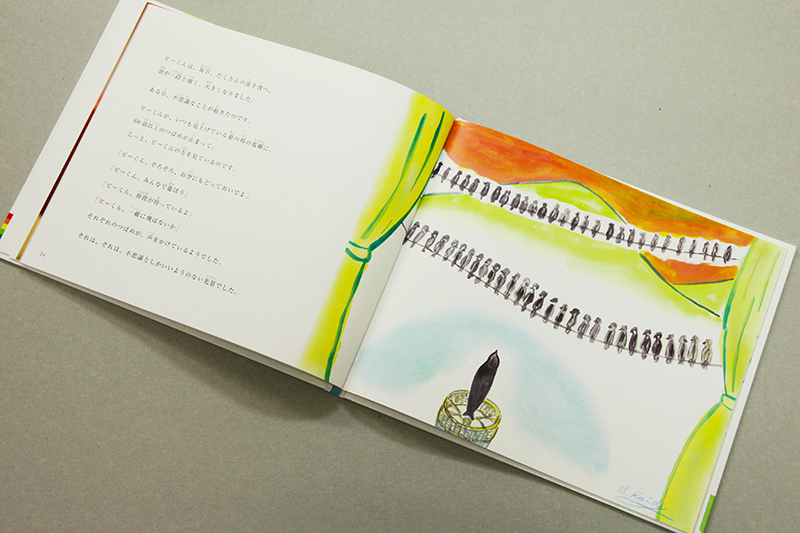 ピーくんは、毎日、たくさんの虫を食べ、
羽が一段と強く、大きくなりました。
ある日、不思議なことが起きたのです。
ピーくんが、いつも見上げている窓の外の電線に、
60羽以上のつばめが止まって、
じっと、ピーくんの方を見ているのです。
「ピーくん、そろそろ、お空にもどっておいでよ」
「ピーくん、みんなで遊ぼう」
「ピーくん、仲間が待っているよ」
「ピーくん、一緒に飛ばないか」
それぞれのつばめが、声をかけているようでした。
それは、それは、不思議としかいいようのない光景でした。
24